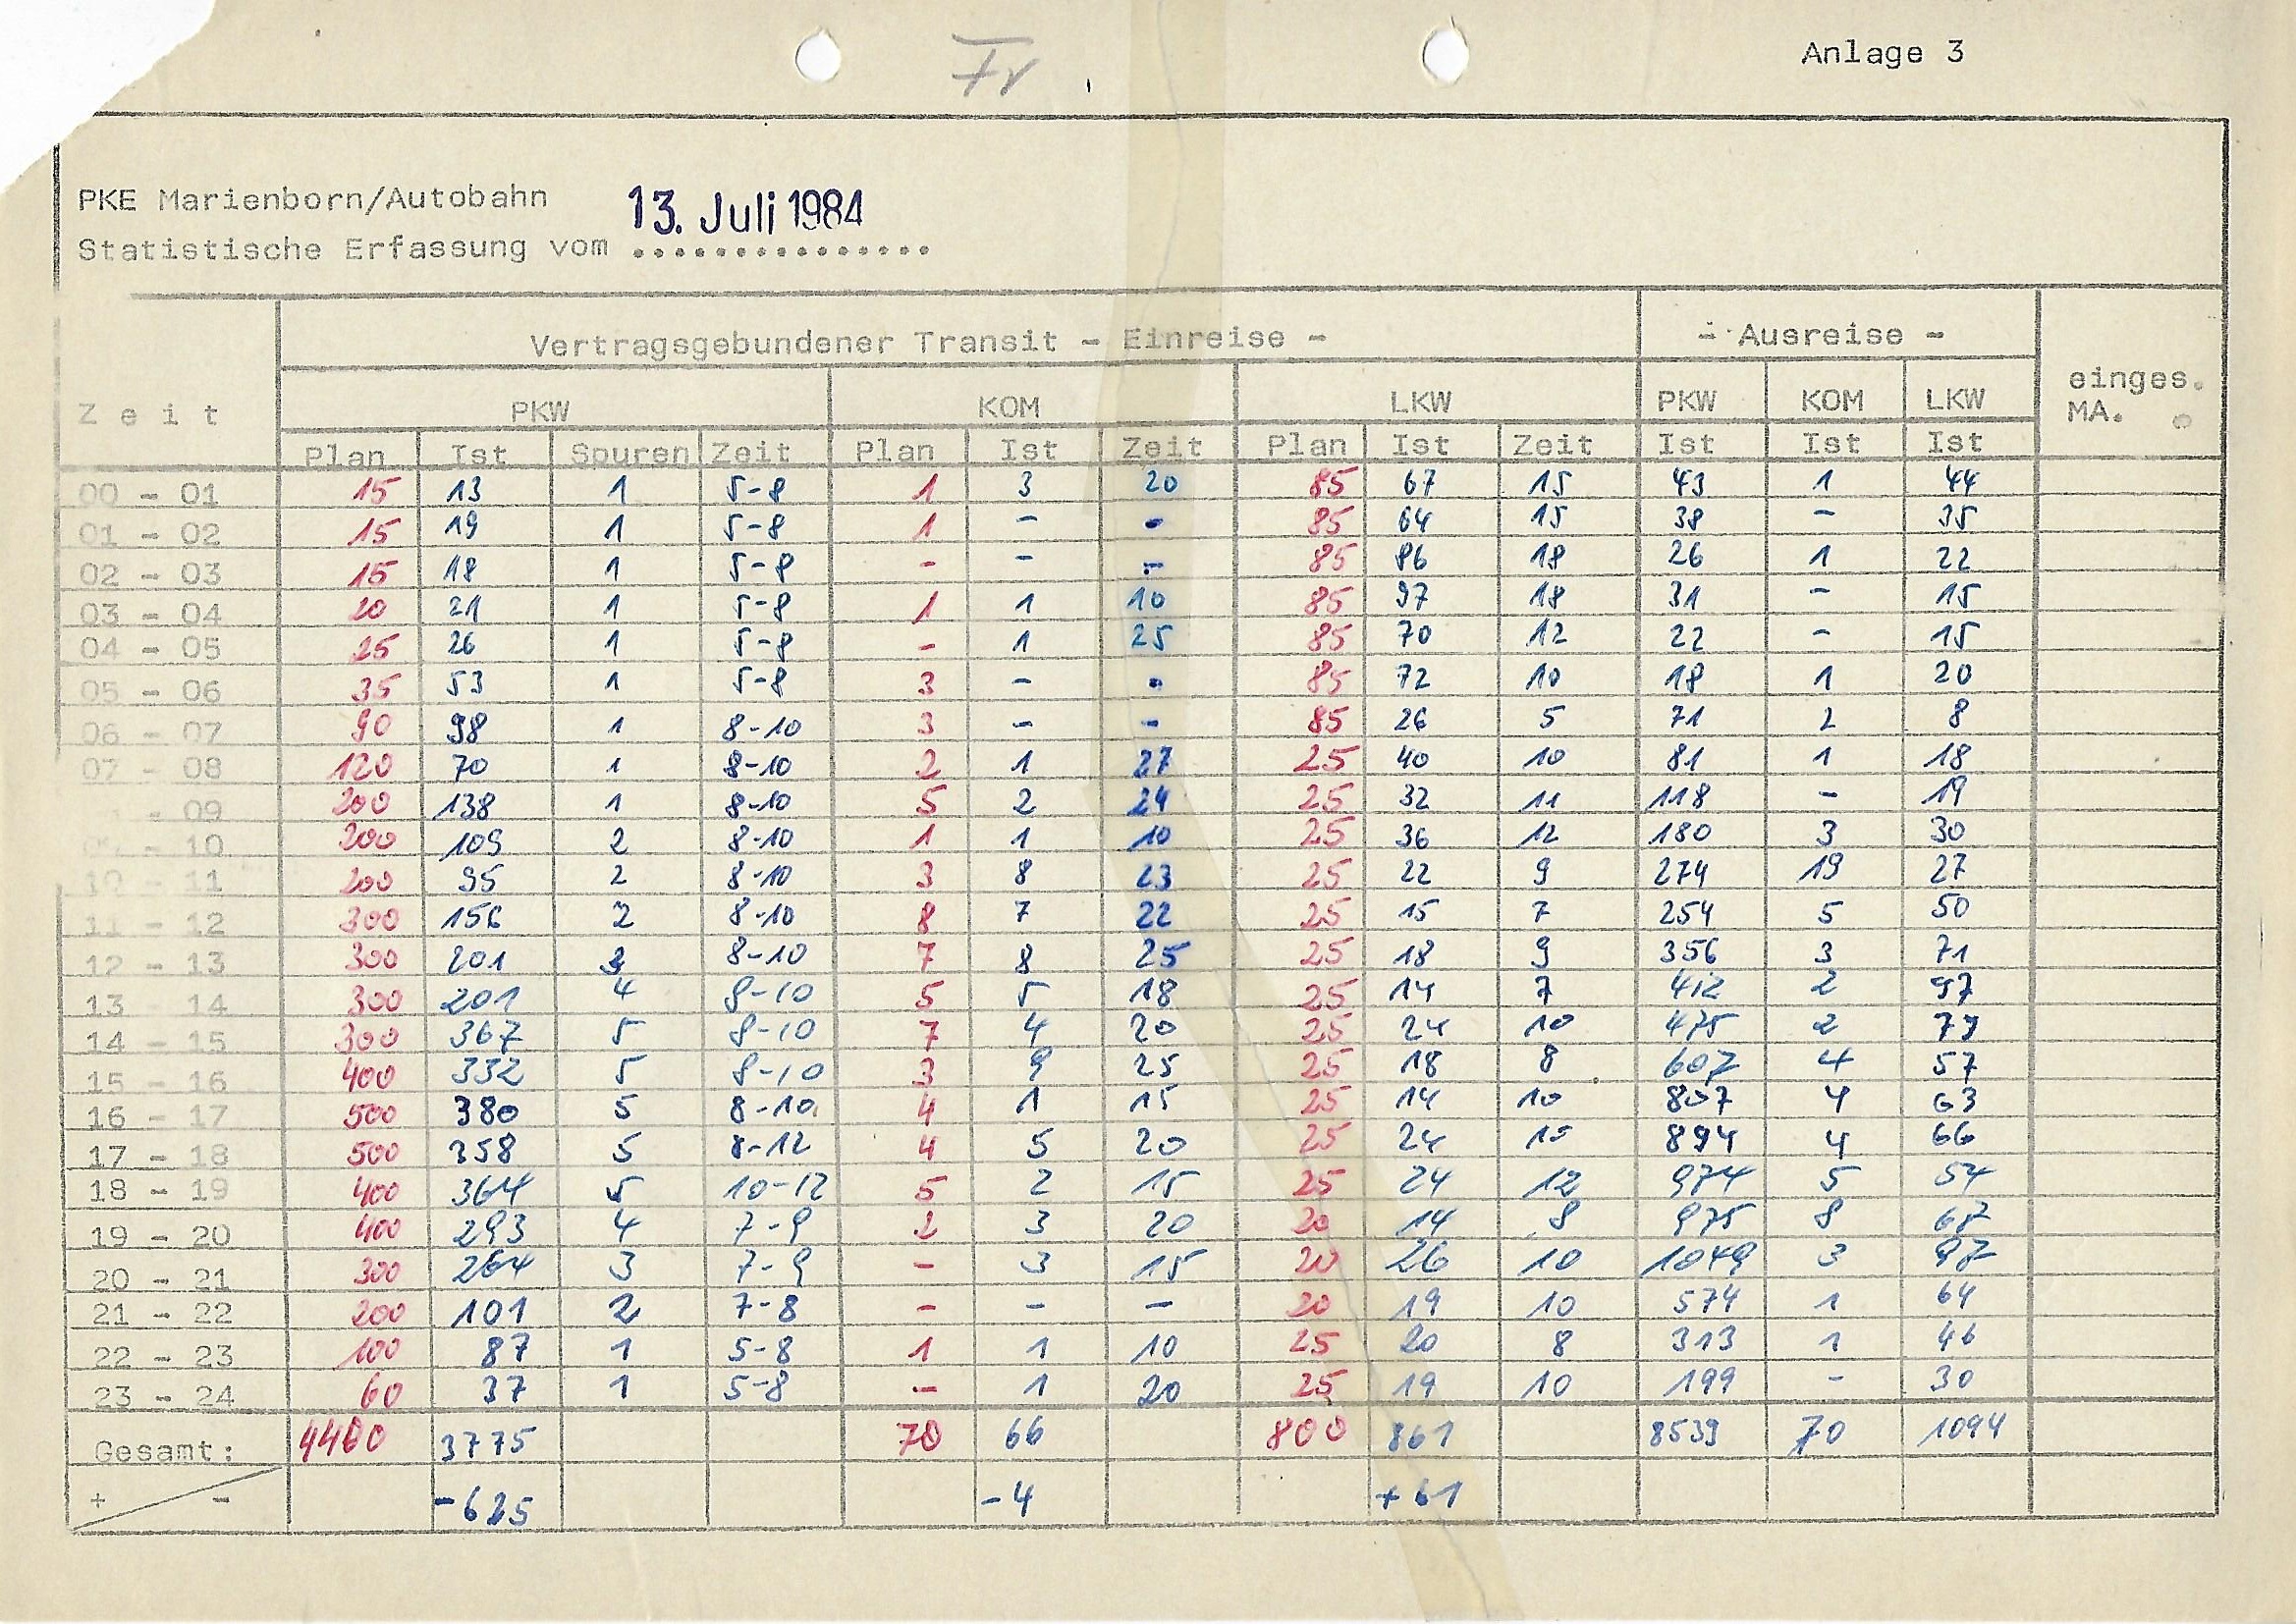 Fr
Anlage 3
PKE Marienborn/Autobahn 13. Juli 1984
Statistische Erfassung vom ...............
Vertragsgebundener Transit - Einreise - - Ausreise -
Zeit PKW KOM LKW PKW KOM LKW einges. MA.
Plan Ist Spuren Zeit Plan Ist Zeit Plan Ist Zeit Ist Ist Ist
00 - 01 15 13 1 5-8 1 3 20 85 67 15 43 1 44
01 - 02 15 19 1 5-8 1 - - 85 64 15 38 - 35
02 - 03 15 18 1 5-8 - - - 85 86 18 26 1 22
03 - 04 20 21 1 5-8 1 1 10 85 97 18 31 - 15
04 - 05 25 26 1 5-8 - 1 25 85 70 12 22 - 15
05 - 06 35 53 1 5-8 3 - - 85 72 10 18 1 20
06 - 07 90 98 1 8-10 3 - - 85 26 5 71 2 8
07 - 08 120 70 1 8-10 2 1 27 25 40 10 81 1 18
- 09 200 138 1 8-10 5 2 24 25 32 11 118 - 19
09 - 10 200 109 2 8-10 1 1 10 25 36 12 180 3 30
10 - 11 200 95 2 8-10 3 8 23 25 22 9 274 19 27
11 - 12 300 156 2 8-10 8 7 22 25 15 7 254 5 50
12 - 13 300 201 3 8-10 7 8 25 25 18 9 356 3 71
13 - 14 300 201 4 8-10 5 5 18 25 14 7 412 2 97
14 - 15 300 367 5 8-10 7 4 20 25 24 10 475 2 77
15 - 16 400 332 5 8-10 3 9 25 25 18 8 607 4 57
16 - 17 500 380 5 8-10 4 1 15 25 14 10 807 4 63
17 - 18 500 358 5 8-12 4 5 20 25 24 10 894 4 66
18 - 19 400 364 5 10-12 5 2 15 25 24 12 974 5 54
19 - 20 400 293 4 7-9 2 3 20 20 14 8 975 8 67
20 - 21 300 264 3 7-9 - 3 15 20 26 10 1049 3 97
21 - 22 200 101 2 7-8 - - - 20 19 10 574 1 64
22 - 23 100 87 1 5-8 1 1 10 25 20 8 313 1 46
23 - 24 60 37 1 5-8 - 1 20 25 19 10 199 - 30
Gesamt: 4400 3775 70 66 800 861 8539 70 1094
+ - -625 -4 +61